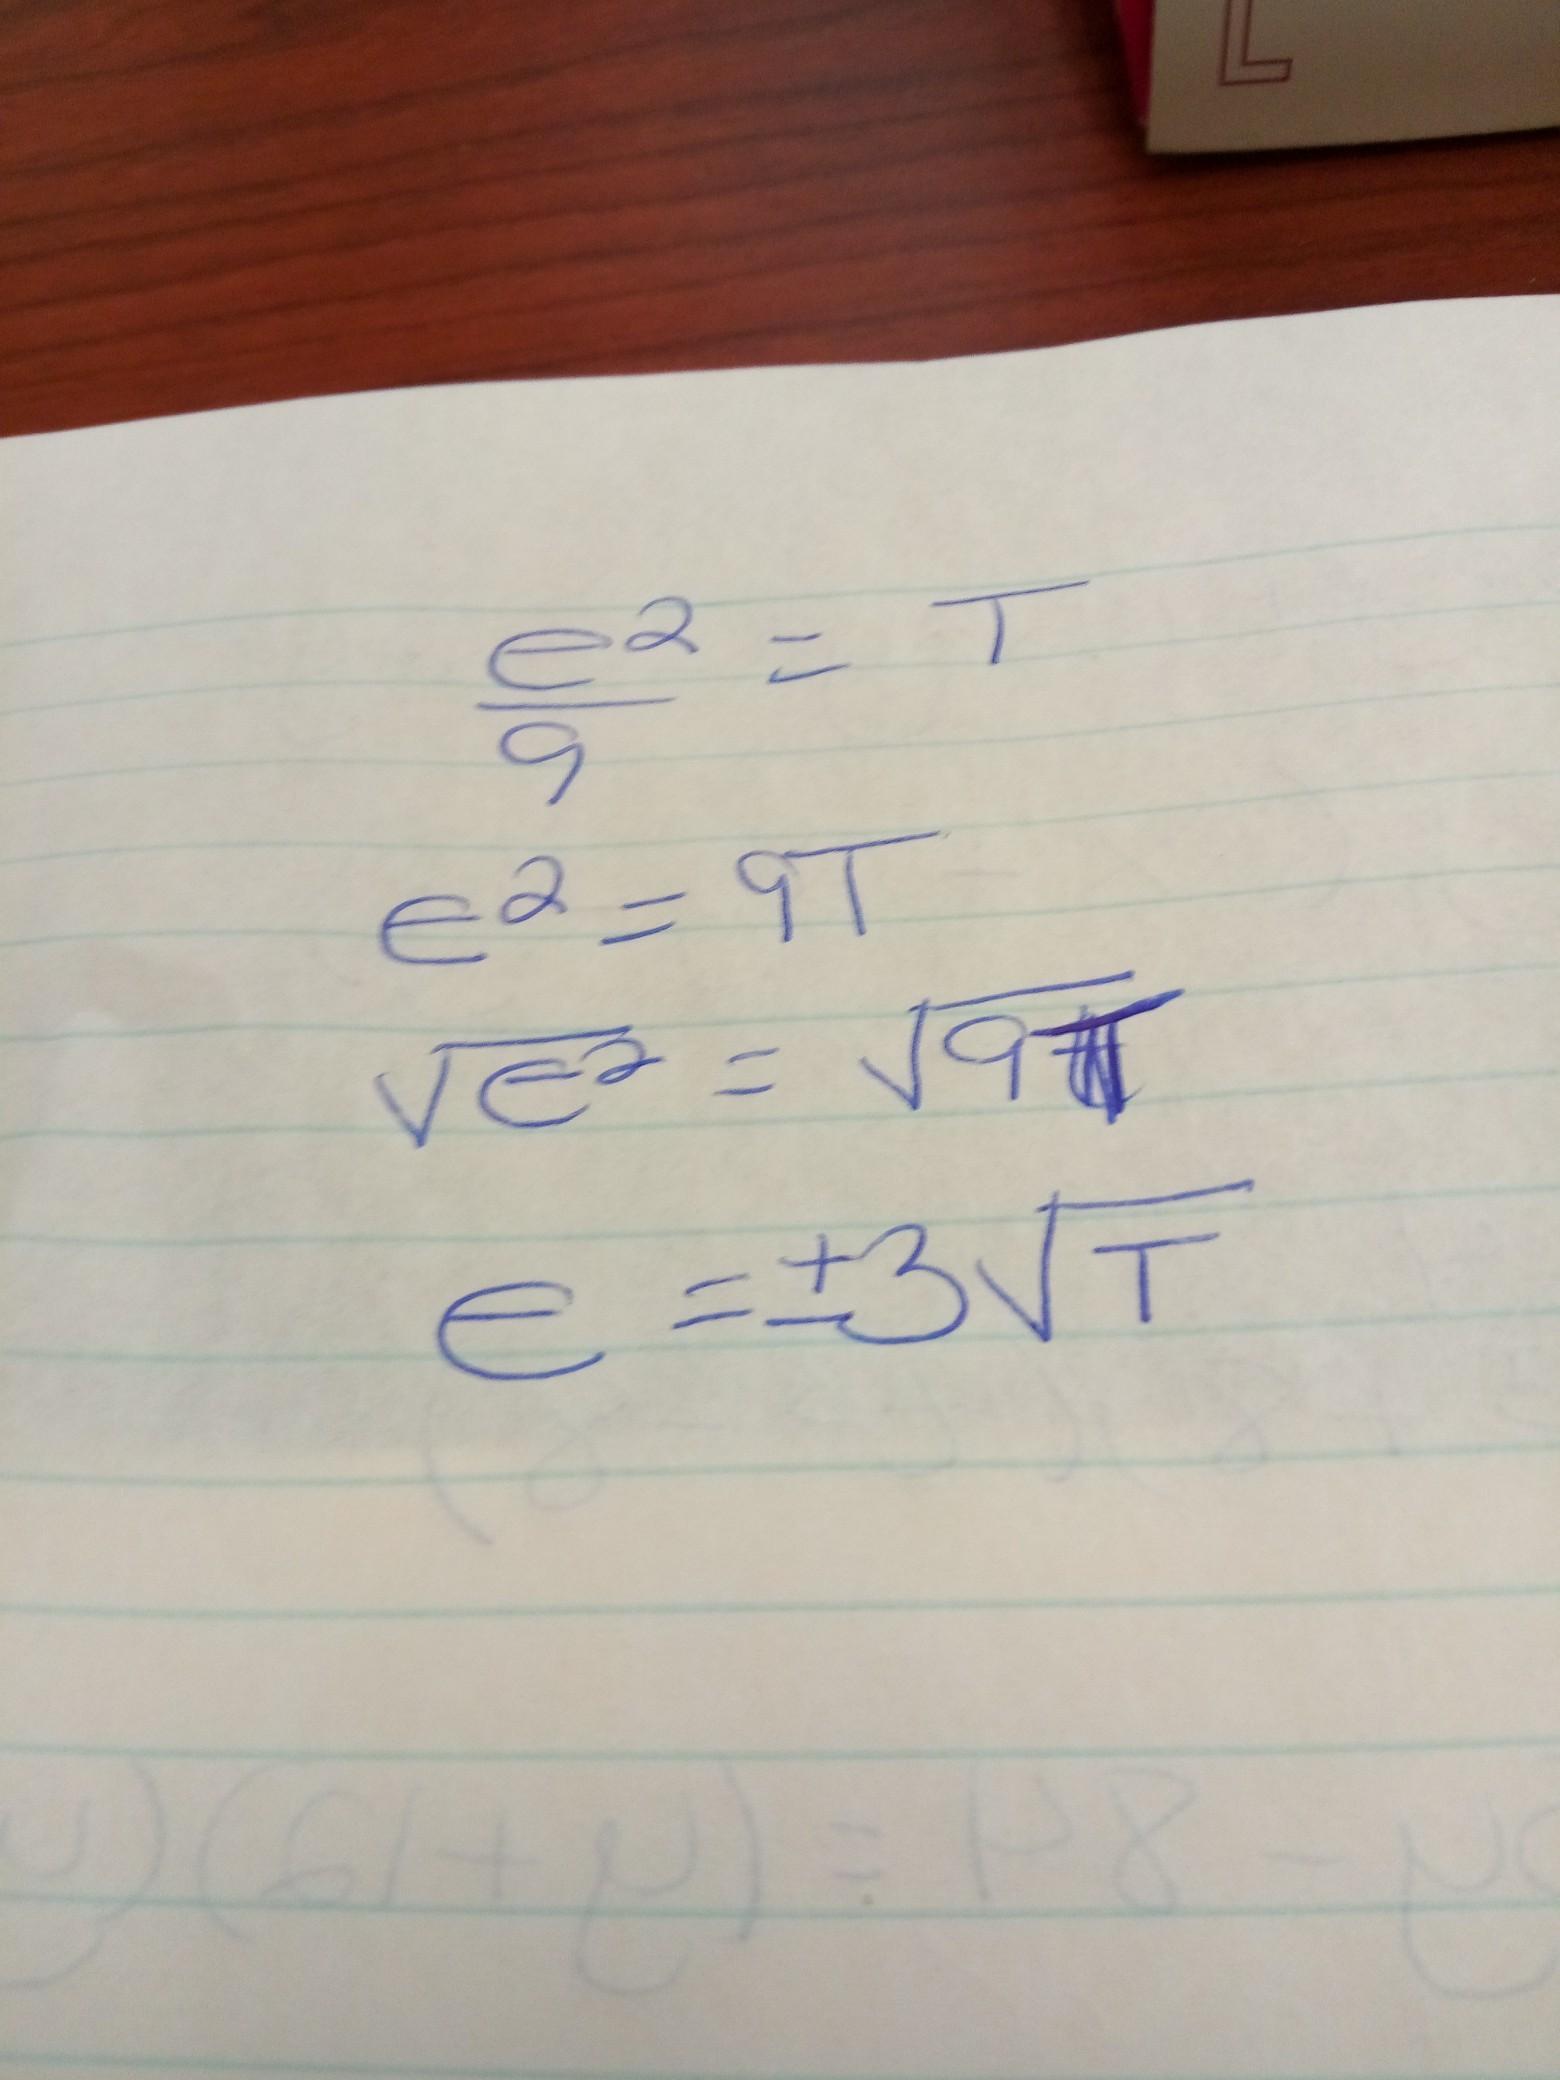 L
e²/9 = T
e² = 9T
√e² = √9T
e = ±3√T